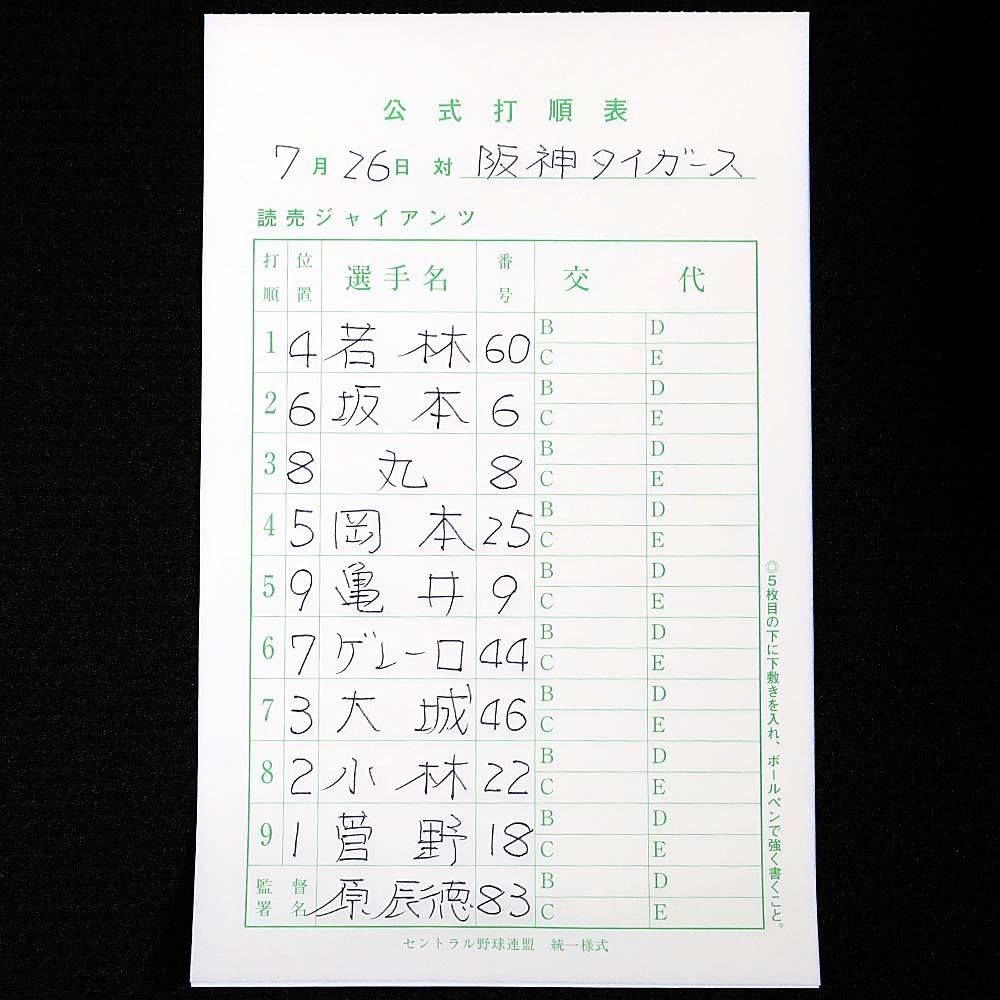 公式打順表
7月26日 対 阪神タイガース
読売ジャイアンツ
打順 位置 選手名 番号 交代
1 4 若林 60 B D
C E
2 6 坂本 6 B D
C E
3 8 丸 8 B D
C E
4 5 岡本 25 B D
C E
5 9 亀井 9 B D
C E
6 7 ゲレーロ 44 B D
C E
7 3 大城 46 B D
C E
8 2 小林 22 B D
C E
9 1 菅野 18 B D
C E
監督署名 原辰徳 83 B D
C E
セントラル野球連盟 統一様式
◎5枚目の下に下敷きを入れ、ボールペンで強く書くこと。